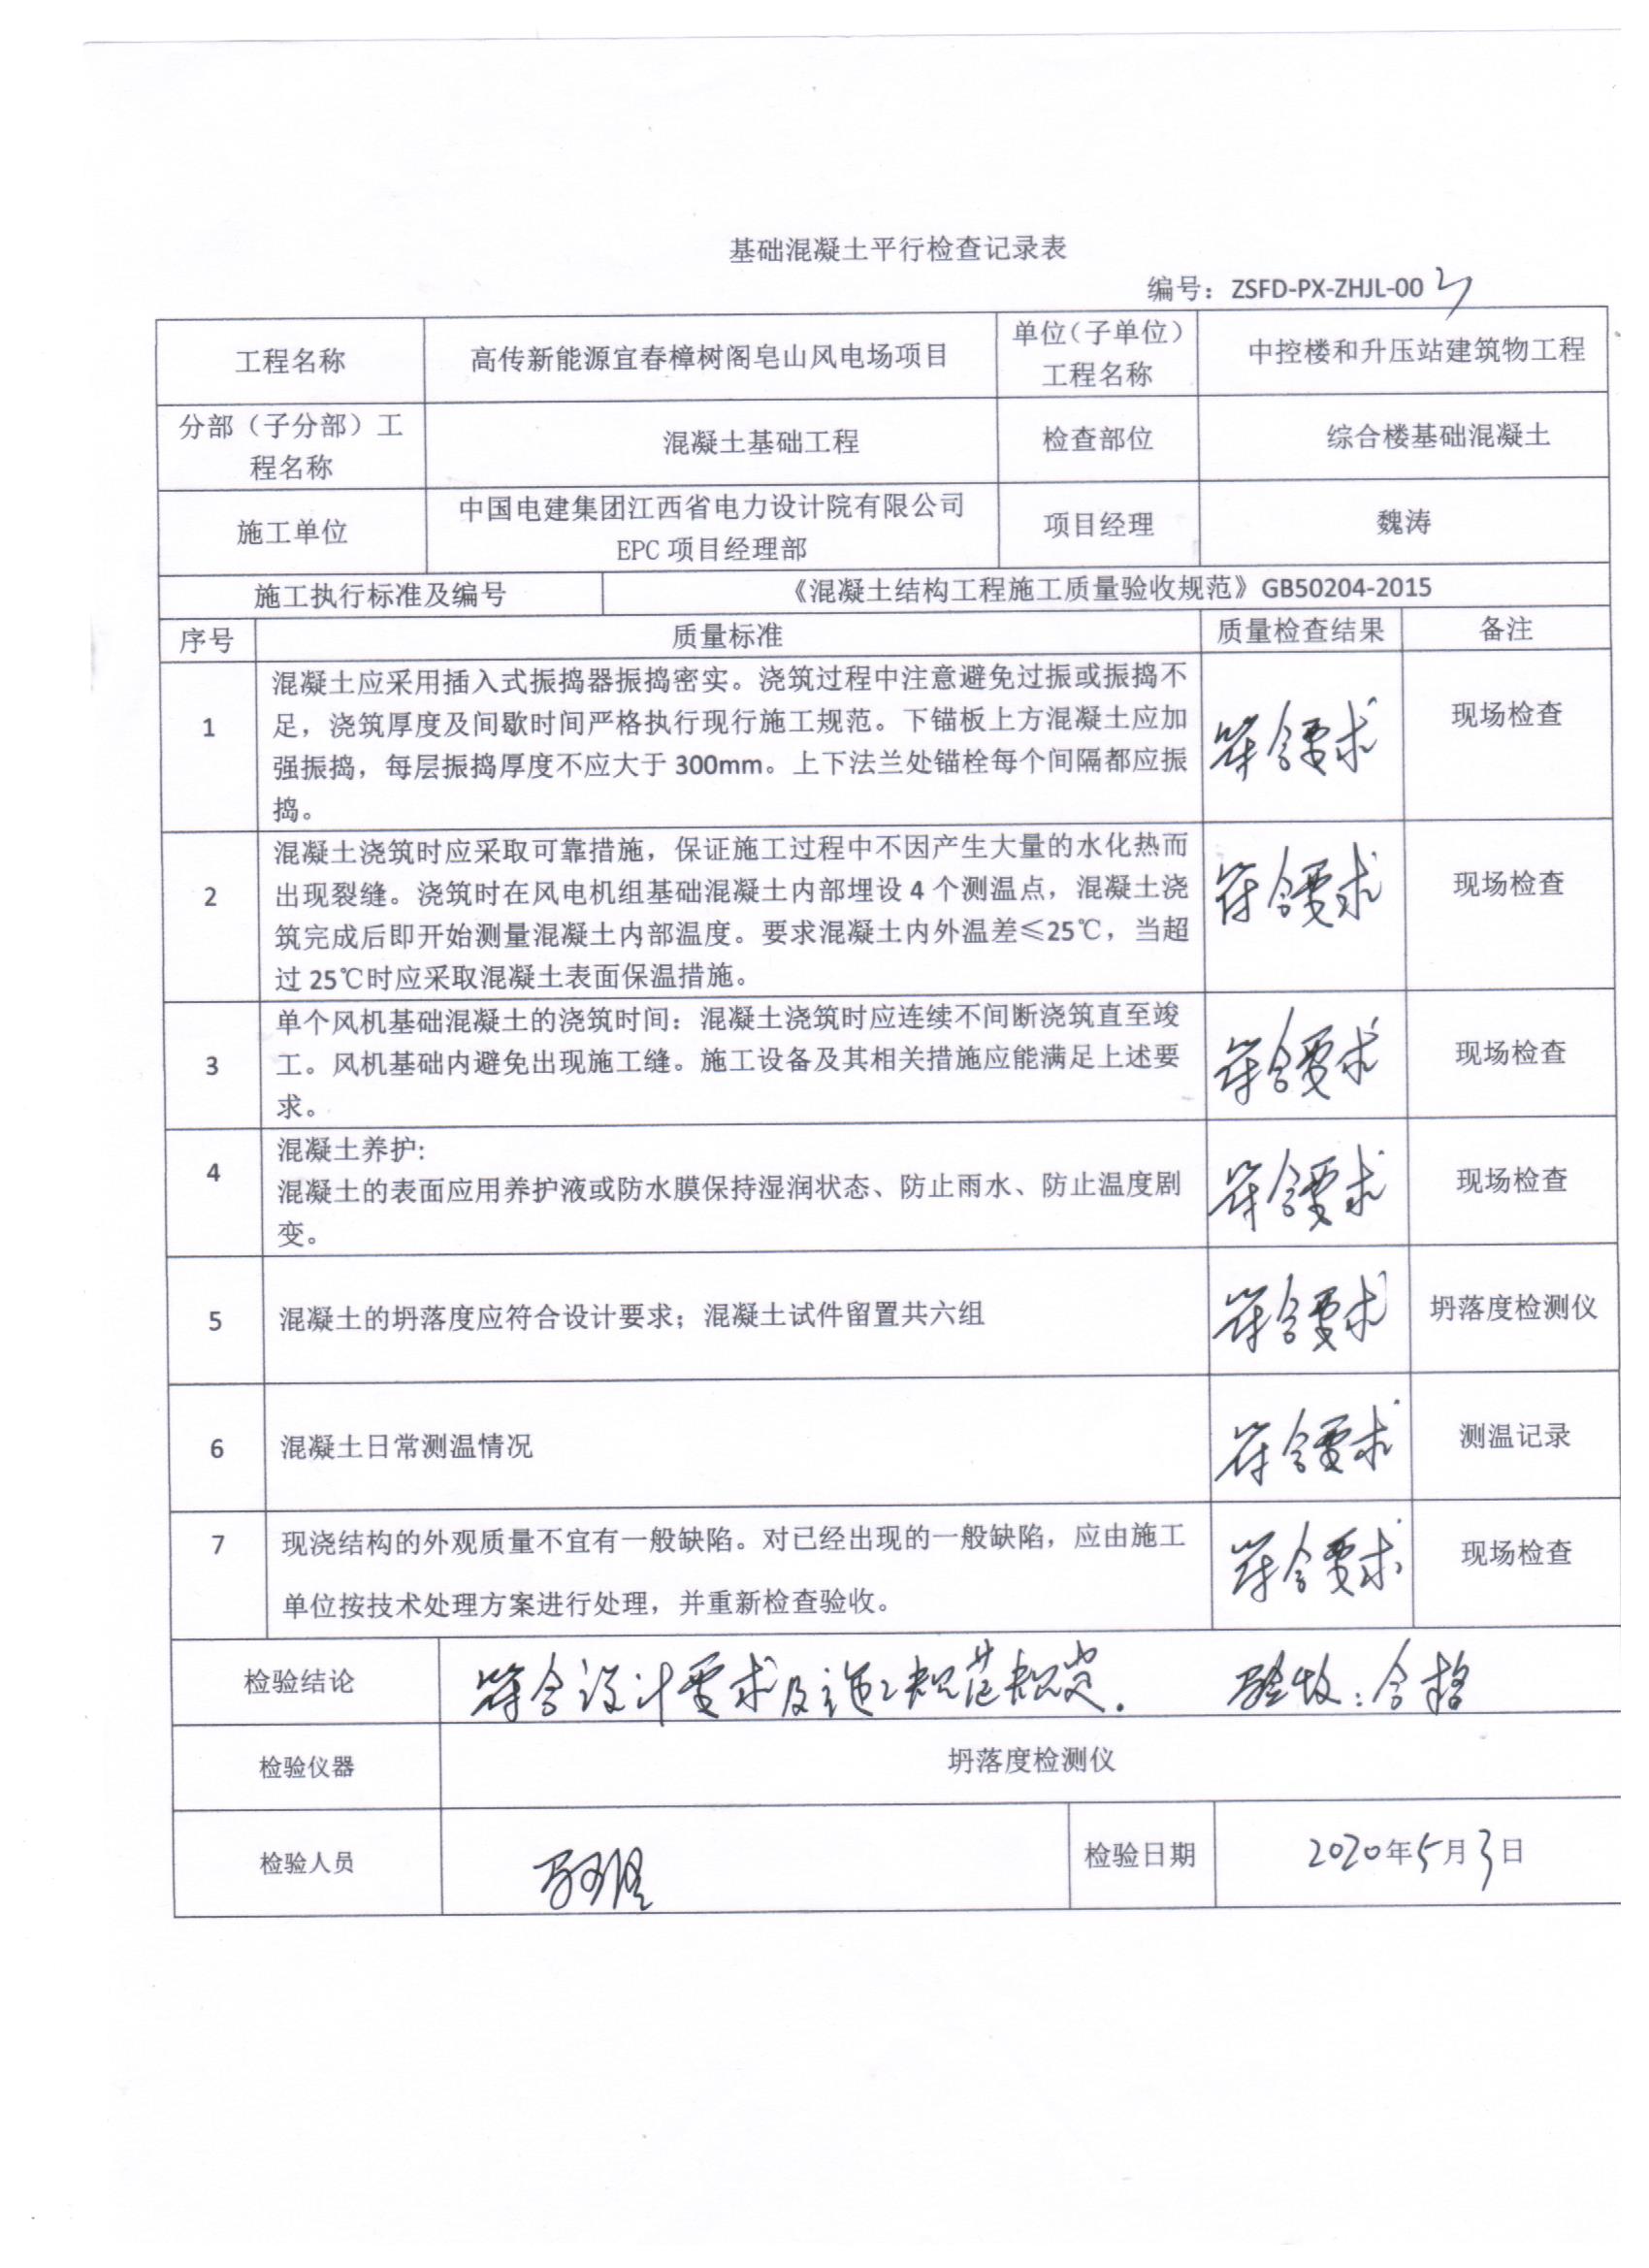 基础混凝土平行检查记录表
编号：ZSFD-PX-ZHJL-00
工程名称 高传新能源宜春樟树阁皂山风电场项目 单位（子单位）工程名称 中控楼和升压站建筑物工程
分部（子分部）工程名称 混凝土基础工程 检查部位 综合楼基础混凝土
施工单位 中国电建集团江西省电力设计院有限公司
EPC 项目经理部 项目经理 魏涛
施工执行标准及编号 《混凝土结构工程施工质量验收规范》GB50204-2015
序号 质量标准 质量检查结果 备注
1 混凝土应采用插入式振捣器振捣密实。浇筑过程中注意避免过振或振捣不
足，浇筑厚度及间歇时间严格执行现行施工规范。下锚板上方混凝土应加
强振捣，每层振捣厚度不应大于 300mm。上下法兰处锚栓每个间隔都应振
捣。
符合要求 现场检查
2 混凝土浇筑时应采取可靠措施，保证施工过程中不因产生大量的水化热而
出现裂缝。浇筑时在风电机组基础混凝土内部埋设 4 个测温点，混凝土浇
筑完成后即开始测量混凝土内部温度。要求混凝土内外温差≤25℃，当超
过 25℃时应采取混凝土表面保温措施。
符合要求 现场检查
3 单个风机基础混凝土的浇筑时间：混凝土浇筑时应连续不间断浇筑直至竣
工。风机基础内避免出现施工缝。施工设备及其相关措施应能满足上述要
求。
符合要求 现场检查
4 混凝土养护:
混凝土的表面应用养护液或防水膜保持湿润状态、防止雨水、防止温度剧
变。
符合要求 现场检查
5 混凝土的坍落度应符合设计要求；混凝土试件留置共六组 符合要求 坍落度检测仪
6 混凝土日常测温情况 符合要求 测温记录
7 现浇结构的外观质量不宜有一般缺陷。对已经出现的一般缺陷，应由施工
单位按技术处理方案进行处理，并重新检查验收。
符合要求 现场检查
检验结论 符合设计要求及施工规范规定. 验收：合格
检验仪器 坍落度检测仪
检验人员 检验日期 2020年5月3日